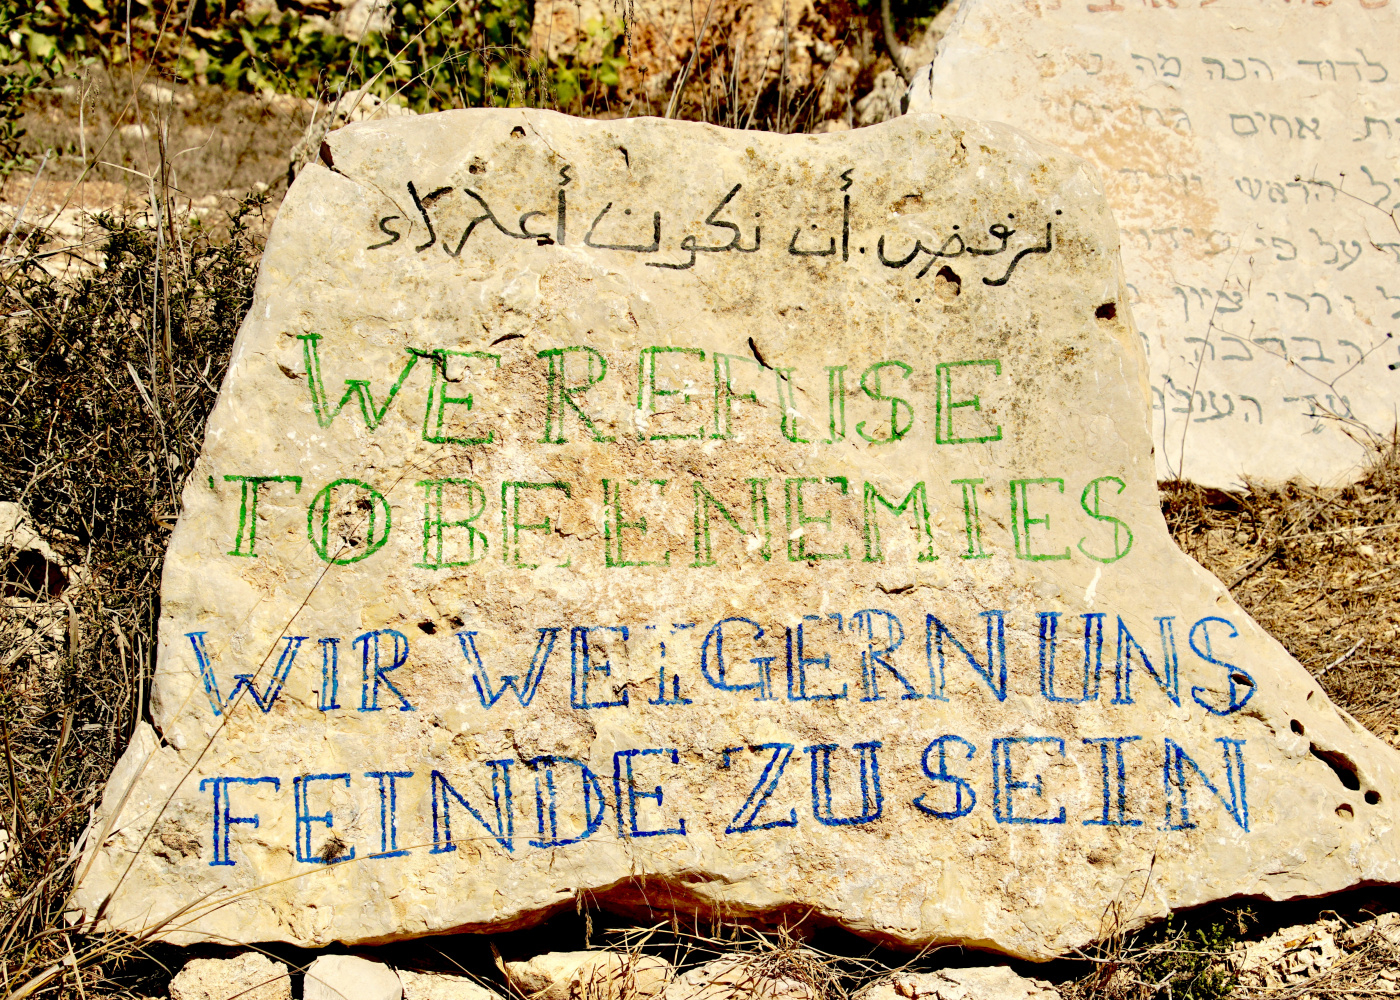 نرفض أن نكون أعداء
WE REFUSE
TO BE ENEMIES
WIR WEIGERN UNS
FEINDE ZU SEIN
לדוד הנה מה
אחים
הראש
על פי
הררי ציון
הברכה
עד העולם